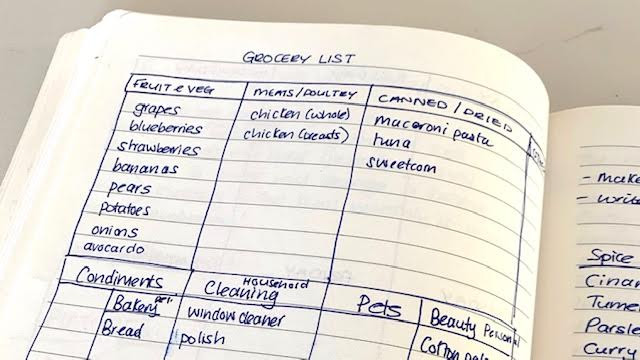 GROCERY LIST
FRUIT & VEG MEATS/POULTRY CANNED/DRIED
grapes chicken (whole) macaroni pasta
blueberries chicken (breasts) tuna
strawberries sweetcorn
bananas
pears
potatoes
onions
avocardo
Condiments HOUSEHOLD Cleaning Pets Beauty Personal
Bakery window cleaner Cotton
Bread polish
- make
- write
Spice
Cinan
Tume
Parsle
Curry